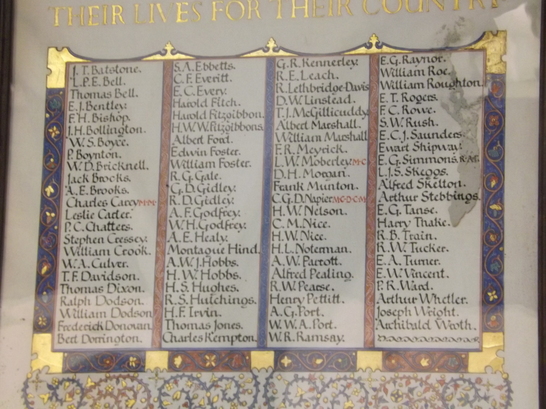 THEIR LIVES FOR THEIR COUNTRY
J. T. Batstone.
L. P. E. Bell.
Thomas Bell.
E. J. Bentley.
E. H. Bishop.
J. H. Bollington.
W. S. Boyce.
P. Boynton.
W. D. Bricknell.
Jack Brocks.
A. E. Brooks.
Charles Carey M.M.
Leslie Carter.
P. C. Chatters.
Stephen Cressey.
William Crook.
W. A. Culver.
T. F. Davidson.
Thomas Dixon.
Ralph Dodson.
William Dodson
Frederick Donovan.
Bert Dorrington.
S. A. Ebbetts.
C. F. Everitt.
E. C. Every.
Harold Fitch.
Harold Fitzgibbon.
H. W. W. Fitzgibbons.
Albert Ford.
Edwin Foster.
William Foster.
R. G. Gale.
G. D. Gidley.
R. D. Gidley.
A. F. Godfrey.
W. H. Godfrey.
A. E. Healy.
Montague Hind.
A. W. J. Hobbs.
H. W. Hobbs.
H. S. Hughes.
R. S. Hutchings.
H. F. Irvin.
Thomas Jones.
Charles Kempton.
G. R. Kennerley.
R. E. Leach.
R. Lethbridge-Davis
D. W. Linstead.
T. J. McGillicuddy.
Albert Marshall.
William Marshall.
F. R. Meyrick.
L. W. Moberley. M.C.
D. H. Morgan.
Frank Munton.
C. G. D. Napier. M.C. D.C.M.
H. W. Nelson.
C. M. Nice.
H. W. Nice.
H. L. Noleman.
A. W. Parrott.
Alfred Pealing.
R. W. Pearse.
Henry Pettitt.
A. G. Port.
W. W. A. Port.
W. R. Ramsay.
E. G. Raynor.
William Roe.
William Roughton.
E. T. Rogers.
F. C. Rowe.
S. W. Rush.
E. C. J. Saunders.
Ewart Shipway.
E. G. Simmons.
L. J. S. Skeggs.
Alfred Skelton.
Arthur Stebbings.
E. G. Tanse.
Harry Thake.
R. B. Train.
R. W. Tucker.
E. A. Turner.
E. W. Vincent.
P. R. Ward.
Arthur Wheller.
Joseph Wright.
Archibald Wroth.